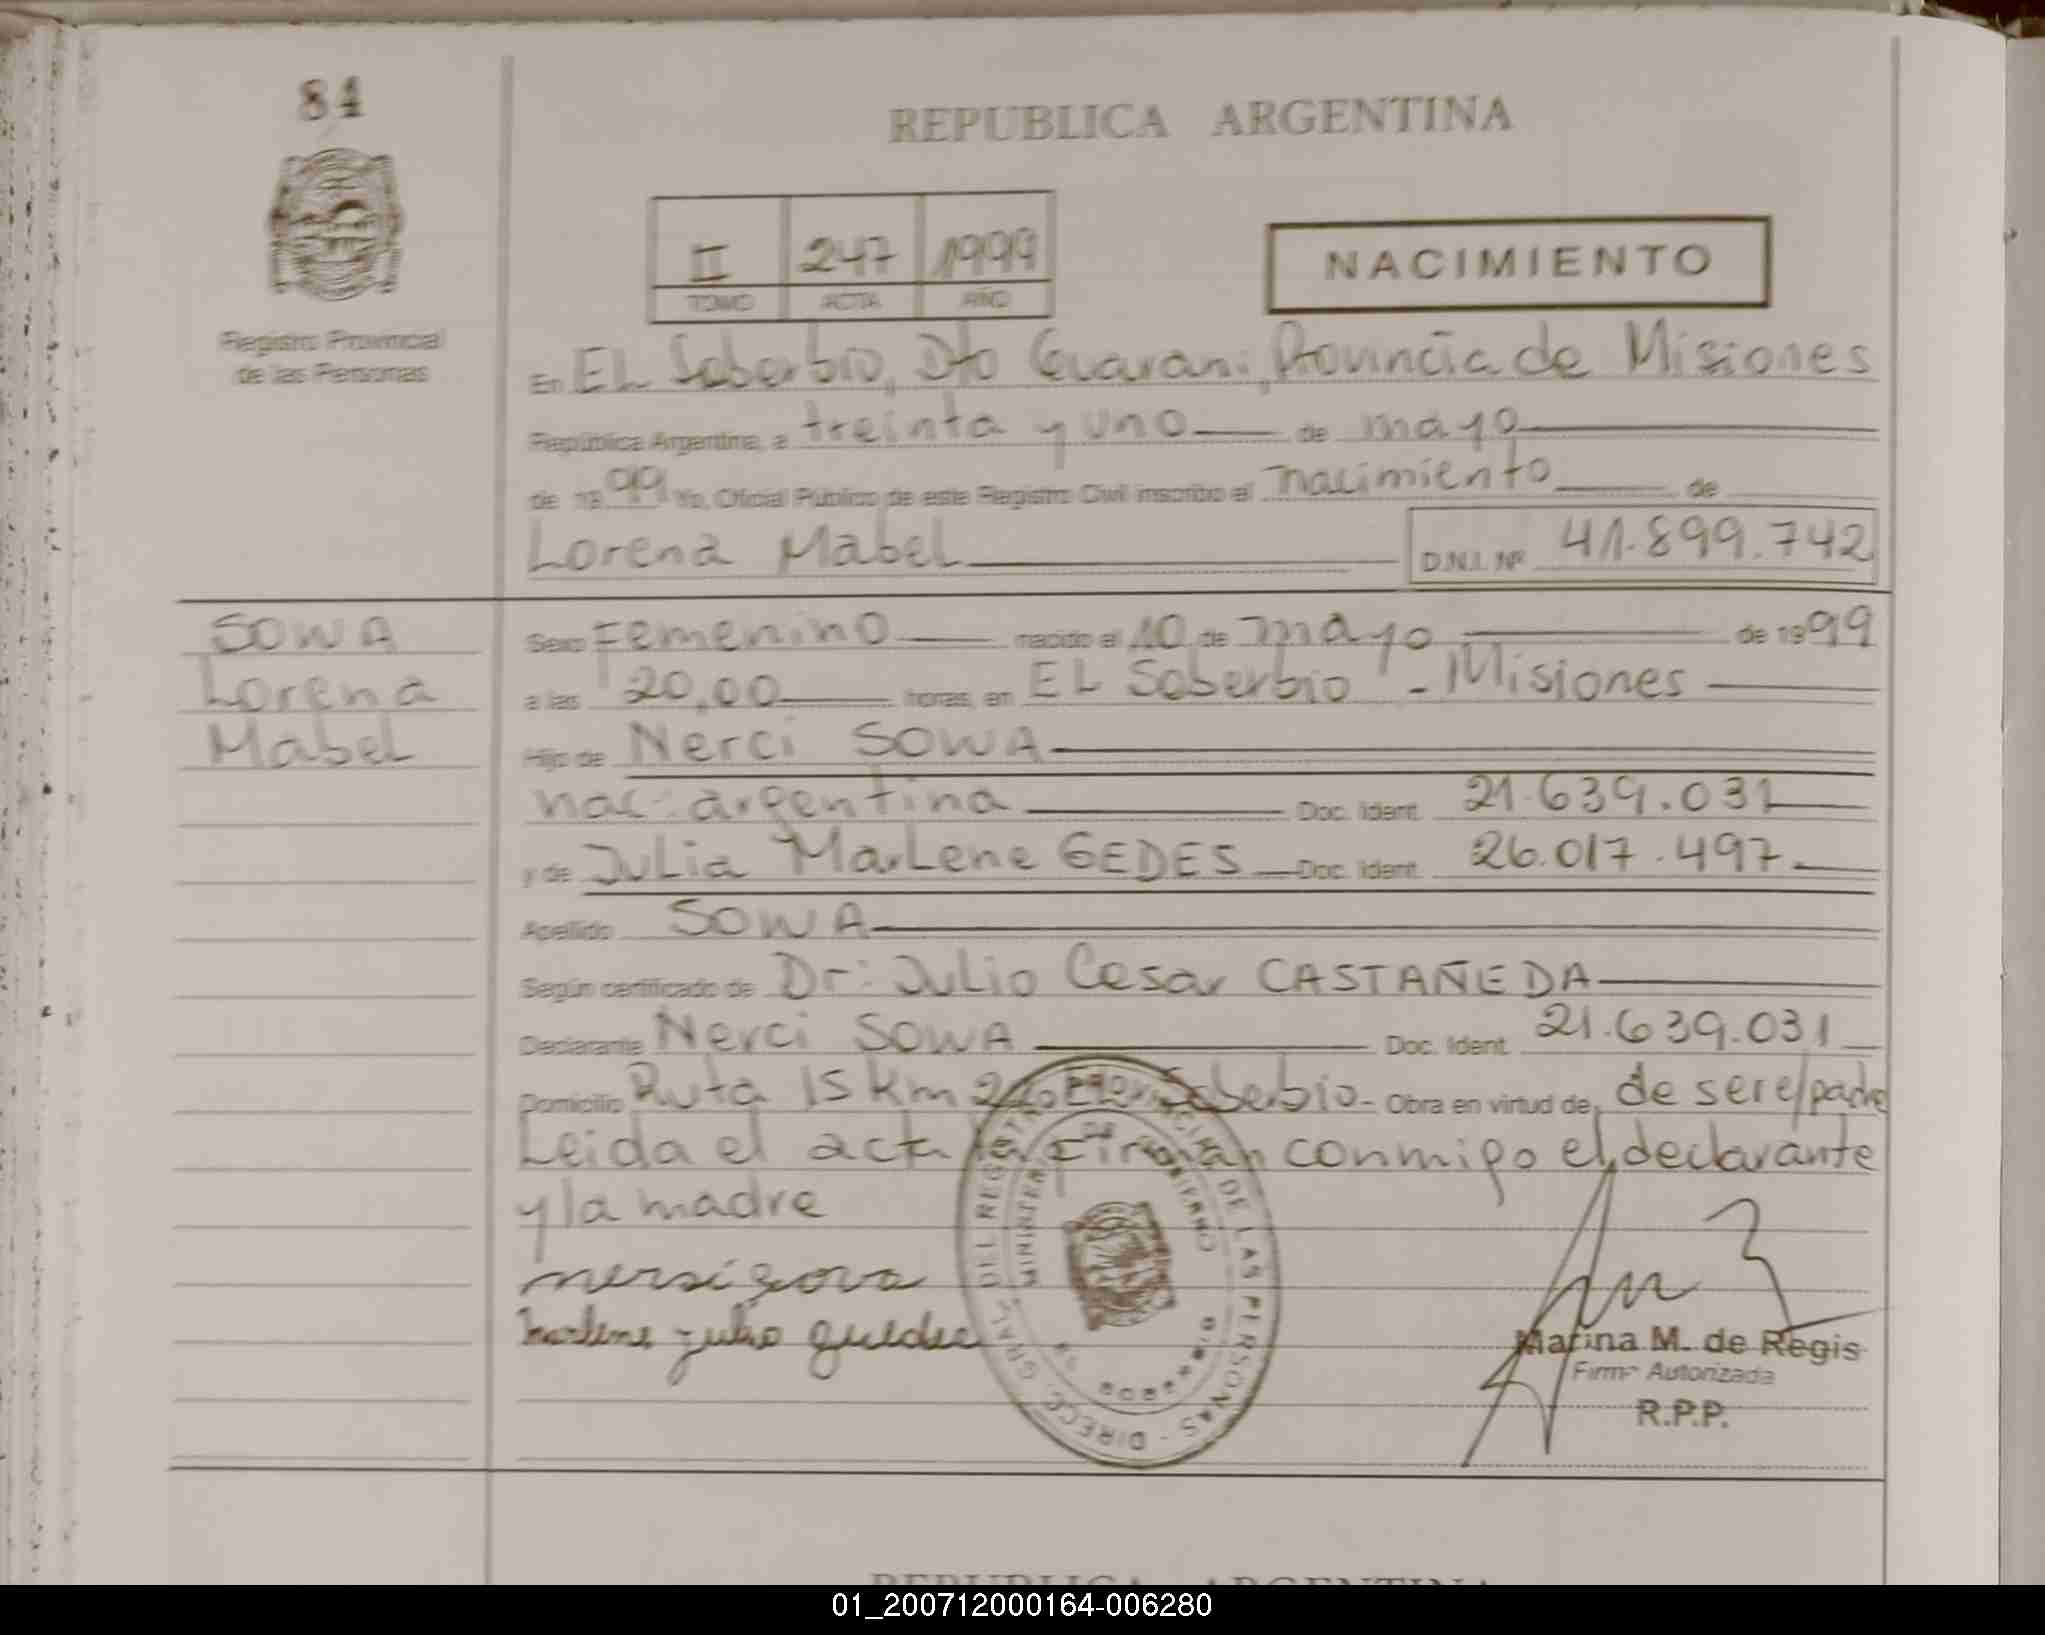 84
REPUBLICA ARGENTINA
II 247 1999
TOMO ACTA AÑO
NACIMIENTO
Registro Provincial
de las Personas
En EL Soberbio, Dto Guarani, Provincia de Misiones
República Argentina, a treinta y uno de mayo
de 1999 Yo, Oficial Público de este Registro Civil inscribo el nacimiento de
Lorena Mabel D.N.I. Nº 41.899.742
SOWA
Lorena
Mabel
Sexo Femenino nacido el 10 de mayo de 1999
a las 20,00 horas, en EL Soberbio - Misiones
Hijo de Nerci SOWA
nac: argentina Doc. Ident. 21.639.031
y de Julia Marlene GEDES Doc. Ident. 26.017.497
Apellido SOWA
Según certificado de Dr: Julio Cesar CASTAÑEDA
Declarante Nerci SOWA Doc. Ident. 21.639.031
Domicilio Ruta 15 Km Soberbio - Obra en virtud de de ser el padre
Leida el acta la firman conmigo el declarante
y la madre
nersi sova
marlene julia guedes
DIRECC. GRAL. DEL REGISTRO PROVINCIAL DE LAS PERSONAS
MINISTERIO DE GOBIERNO
Marina M. de Regis
Firma Autorizada
R.P.P.
REPUBLICA ARGENTINA
01_200712000164-006280